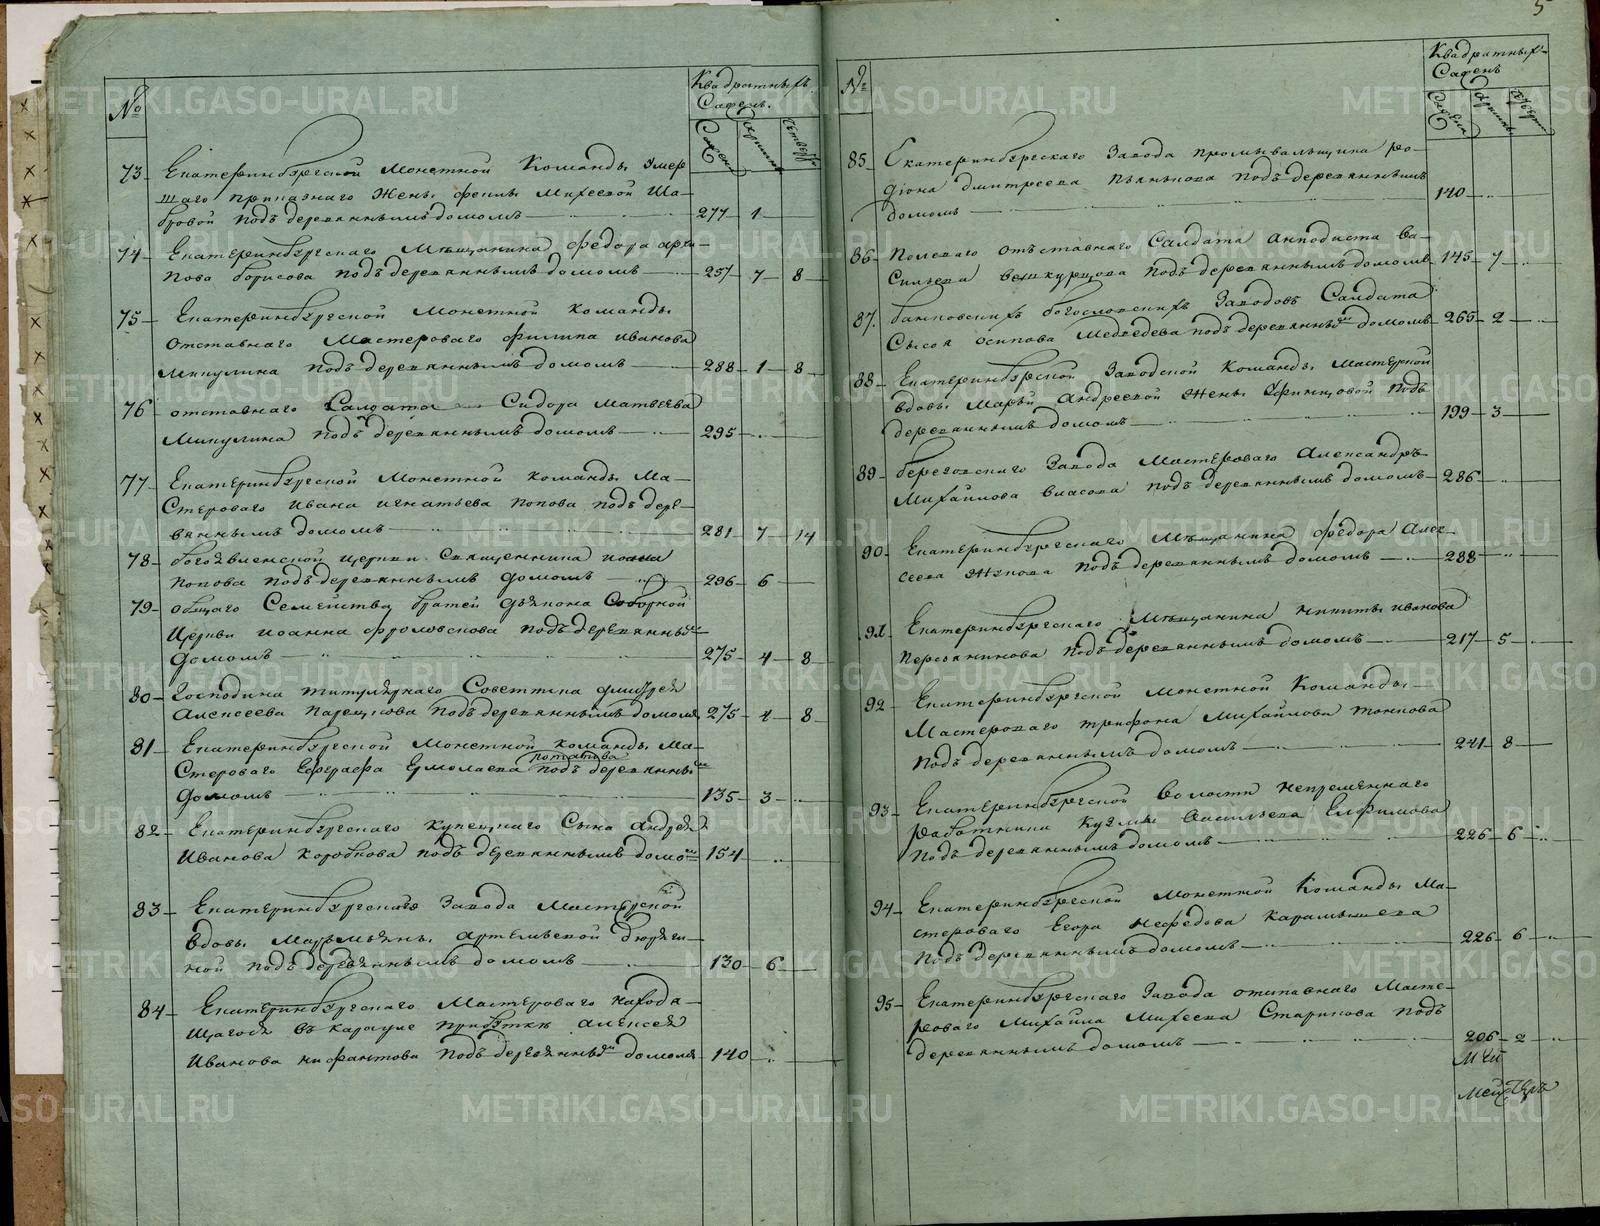 5
№
Квадратныхъ
Сажень.
Сажен
аршинъ
четверт
73 Екатеринбургской Монетной Команды умер
шаго приказнаго Жены феклы Михеевой Ша-
бровой подъ деревяннымъ домомъ 277 1
74 Екатеринбургскаго Мѣщанина федора архи-
пова борисова подъ деревяннымъ домомъ 257 7 8
75 Екатеринбургской Монетной команды
отставнаго Мастероваго филипа иванова
Микулина подъ деревяннымъ домомъ 288 1 8
76 отставнаго Салдата Сидора матвеева
Микулина подъ деревяннымъ домомъ 295
77 Екатеринбургской Монетной команды Ма-
стероваго ивана игнатьева попова подъ дере-
вяннымъ домомъ 281 7 14
78 богоявленской церкви священника иоана
попова подъ деревяннымъ домомъ 296 6
79 общаго Семейства братей дьякона Соборной
Церкви иоанна фроловскова подъ деревянны
домомъ 275 4 8
80 Господина титулярнаго Советника
Алексеева подъ деревяннымъ домомъ 275 4 8
81 Екатеринбургской Монетной команды Ма-
потапова
стероваго Евграфа Ермолаева подъ деревянны
домомъ 135 3
82 Екатеринбургскаго купецкаго Сына андрея
Иванова коробкова подъ деревяннымъ домо 154
83 Екатеринбургскаго Завода Мастерской
вдовы Марьмьяны артемьевой дюряги-
ной подъ деревяннымъ домомъ 130 6
84 Екатеринбургскаго Мастероваго находя-
щагося въ карауле алексея
Иванова нифантова подъ деревянны домомъ 140
№
Квадратныхъ
Сажень
Сажень
аршинъ
четверти
85 Екатеринбургскаго Завода промывальщика ро-
діона дмитреева пьянкова подъ деревяннымъ
домомъ 140
86 полеваго отъставнаго Салдата анподиста ва-
сильева вешкурцова подъ деревяннымъ домомъ 145 7
87. банковскихъ богословскихъ Заводовъ Салдата
Сысоя осипова Медведева подъ деревянны домомъ 265 2
88 Екатеринбургской Заводской Команды мастерской
вдовы Марьи Андреевой жены подъ
деревяннымъ домомъ 199 3
89 березовскаго Завода Мастероваго Александръ
Михайлова власова подъ деревяннымъ домомъ 286
90 Екатеринбургскаго Мѣщанина федора алек-
сеева Жукова подъ деревяннымъ домомъ 288
91 Екатеринбургскаго Мѣщанина никиты иванова
пересянкова подъ деревяннымъ домомъ 217 5
92 Екатеринбургской монетной Команды
Мастероваго трифона Михайлова тонкова
подъ деревяннымъ домомъ 241 8
93 Екатеринбургской волости непременнаго
работника кузмы васильева Елфимова
подъ деревяннымъ домомъ 226 6
94 Екатеринбургской монетной Команды Ма-
стероваго Егора нефедова карамышева
подъ деревяннымъ домомъ 226 6
95 Екатеринбургскаго Завода отставнаго Масте-
роваго Михайла Михеева Старикова подъ
деревяннымъ домомъ 206 2